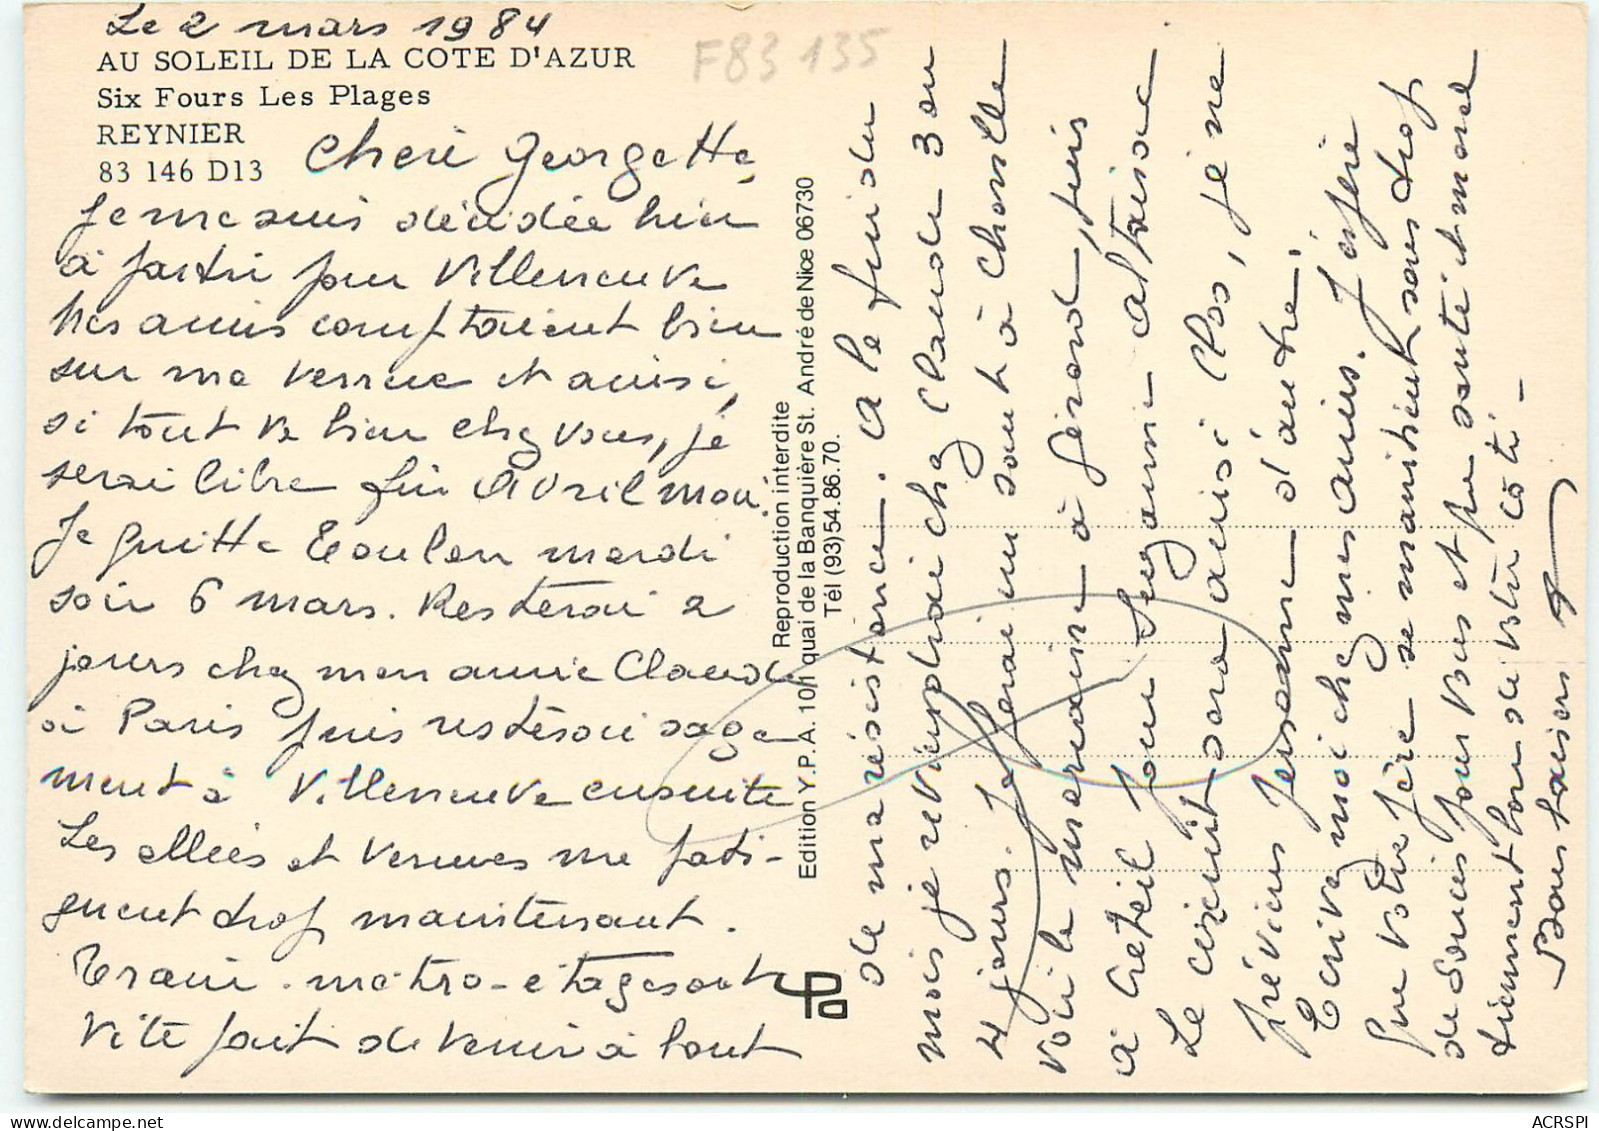 Le 2 mars 1984
AU SOLEIL DE LA COTE D'AZUR
Six Fours Les Plages
REYNIER
83 146 D13
F83 135
Cheri Georgette,
Je me suis décidée hier
à partir pour Villeneuve
Mes amis comptaient bien
sur ma venue et ainsi,
si tout va bien chez vous, je
serai libre fin Avril Mai.
Je quitte Toulon mardi
soir 6 mars. Resterai 2
jours chez mon amie Claude
à Paris puis resterai sage
ment à Villeneuve ensuite
Les allées et venues me fati-
guent trop maintenant.
Train - métro - etages ont
vite fait de venir à bout
Reproduction interdite
Edition Y.P.A. 101 quai de la Banquière St. André de Nice 06730
Tél (93) 54.86.70.
ypa
de ma résistance. A la fin du
mois je reviendrai chez Claude 3 ou
4 jours. J'ferai un saut à Chamille
voir la marraine à Gérard, puis
à Créteil pour Suzanne
Le circuit sera ainsi clos, je ne
préviens personne d'autre.
Ecrivez moi chez mes amis. J'espère
que votre père se maintient sans trop
de soucis pour vous et que santé et moral
tiennent bon de votre côté -
Bons baisers
ACRSPI